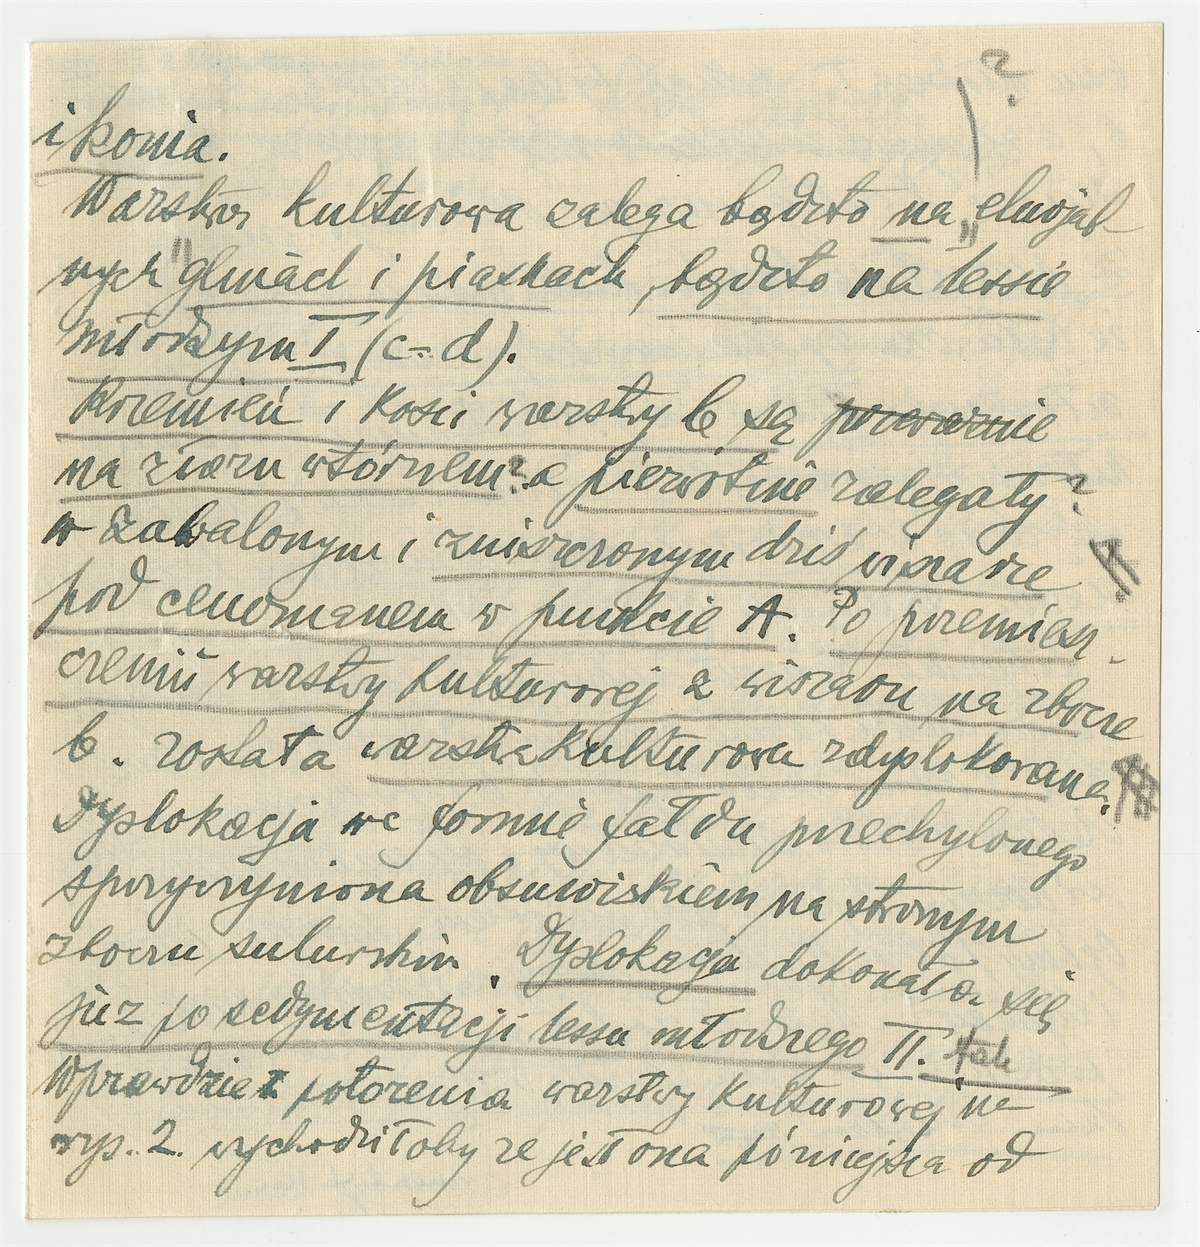 ?
i konia.
Warstwa kulturowa zalega bądźto na „eluvjal-
nych" glinach i piaskach, bądźto na lessie
młodszym I (c-d).
Krzemień i kości warstwy b są przeważnie
na złożu wtórnem? a pierwotnie zalegały?
w zawalonym i zniszczonym dziś wiszarze
pod cenomanem w punkcie A. Po przemiesz-
czeniu warstwy kulturowej z wiszaru na zbocze
b. została warstwa kulturowa zdyslokowana.
Dyslokacja we formie fałdu przechylonego
spryczyniona obsuwiskiem na stromym
zboczu sylurskim. Dyslokacja dokonała się
już po sedymentacji lessu młodszego II. tak
Wprawdzie z położenia warstwy kulturowej na
rys. 2. wychodziłoby że jest ona późniejsza od